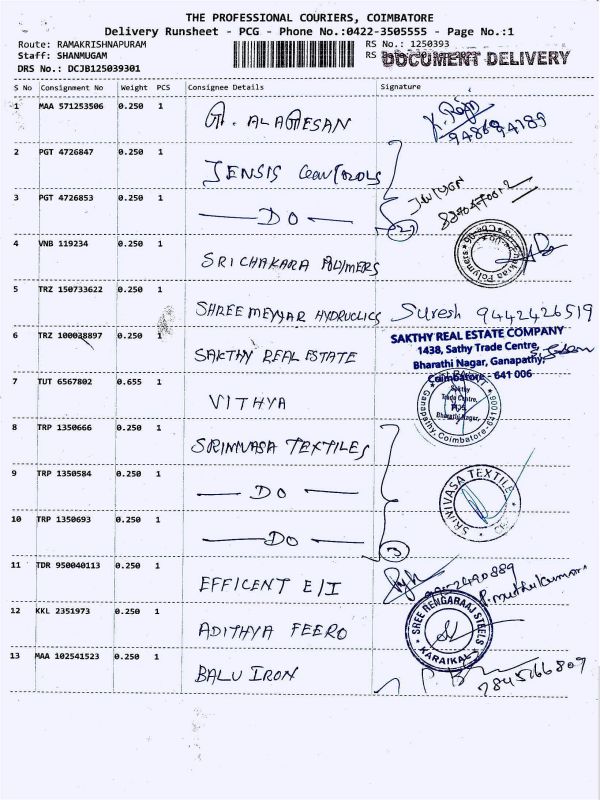 THE PROFESSIONAL COURIERS, COIMBATORE
Delivery Runsheet - PCG - Phone No.:0422-3505555 - Page No.:1
Route: RAMAKRISHNAPURAM RS No.: 1250393
Staff: SHANMUGAM RS DOCUMENT DELIVERY
DRS No.: DCJB125039301
S No Consignment No Weight PCS Consignee Details Signature
1 MAA 571253506 0.250 1 G. ALAGESAN
2 PGT 4726847 0.250 1 JENSIS CONTROLS
3 PGT 4726853 0.250 1 — DO —
4 VNB 119234 0.250 1 SRI CHAKARA POLYMERS
5 TRZ 150733622 0.250 1 SHREE MEYYAR HYDRUCLICS Suresh 9442426519
6 TRZ 100038897 0.250 1 SAKTHY REAL ESTATE
SAKTHY REAL ESTATE COMPANY
1438, Sathy Trade Centre,
Bharathi Nagar, Ganapathy,
Coimbatore - 641 006
7 TUT 6567802 0.655 1 VITHYA
Ganapathy, Coimbatore-641006
8 TRP 1350666 0.250 1 SRINIVASA TEXTILES
9 TRP 1350584 0.250 1 — DO —
SRINIVASA TEXTILE
10 TRP 1350693 0.250 1 — DO — 3
11 TDR 950040113 0.250 1 EFFICENT E/I
P. muthukumar
12 KKL 2351973 0.250 1 ADITHYA FEERO
SREE RENGARAAJ STEELS
KARAIKAL
13 MAA 102541523 0.250 1 BALU IRON 7845266809